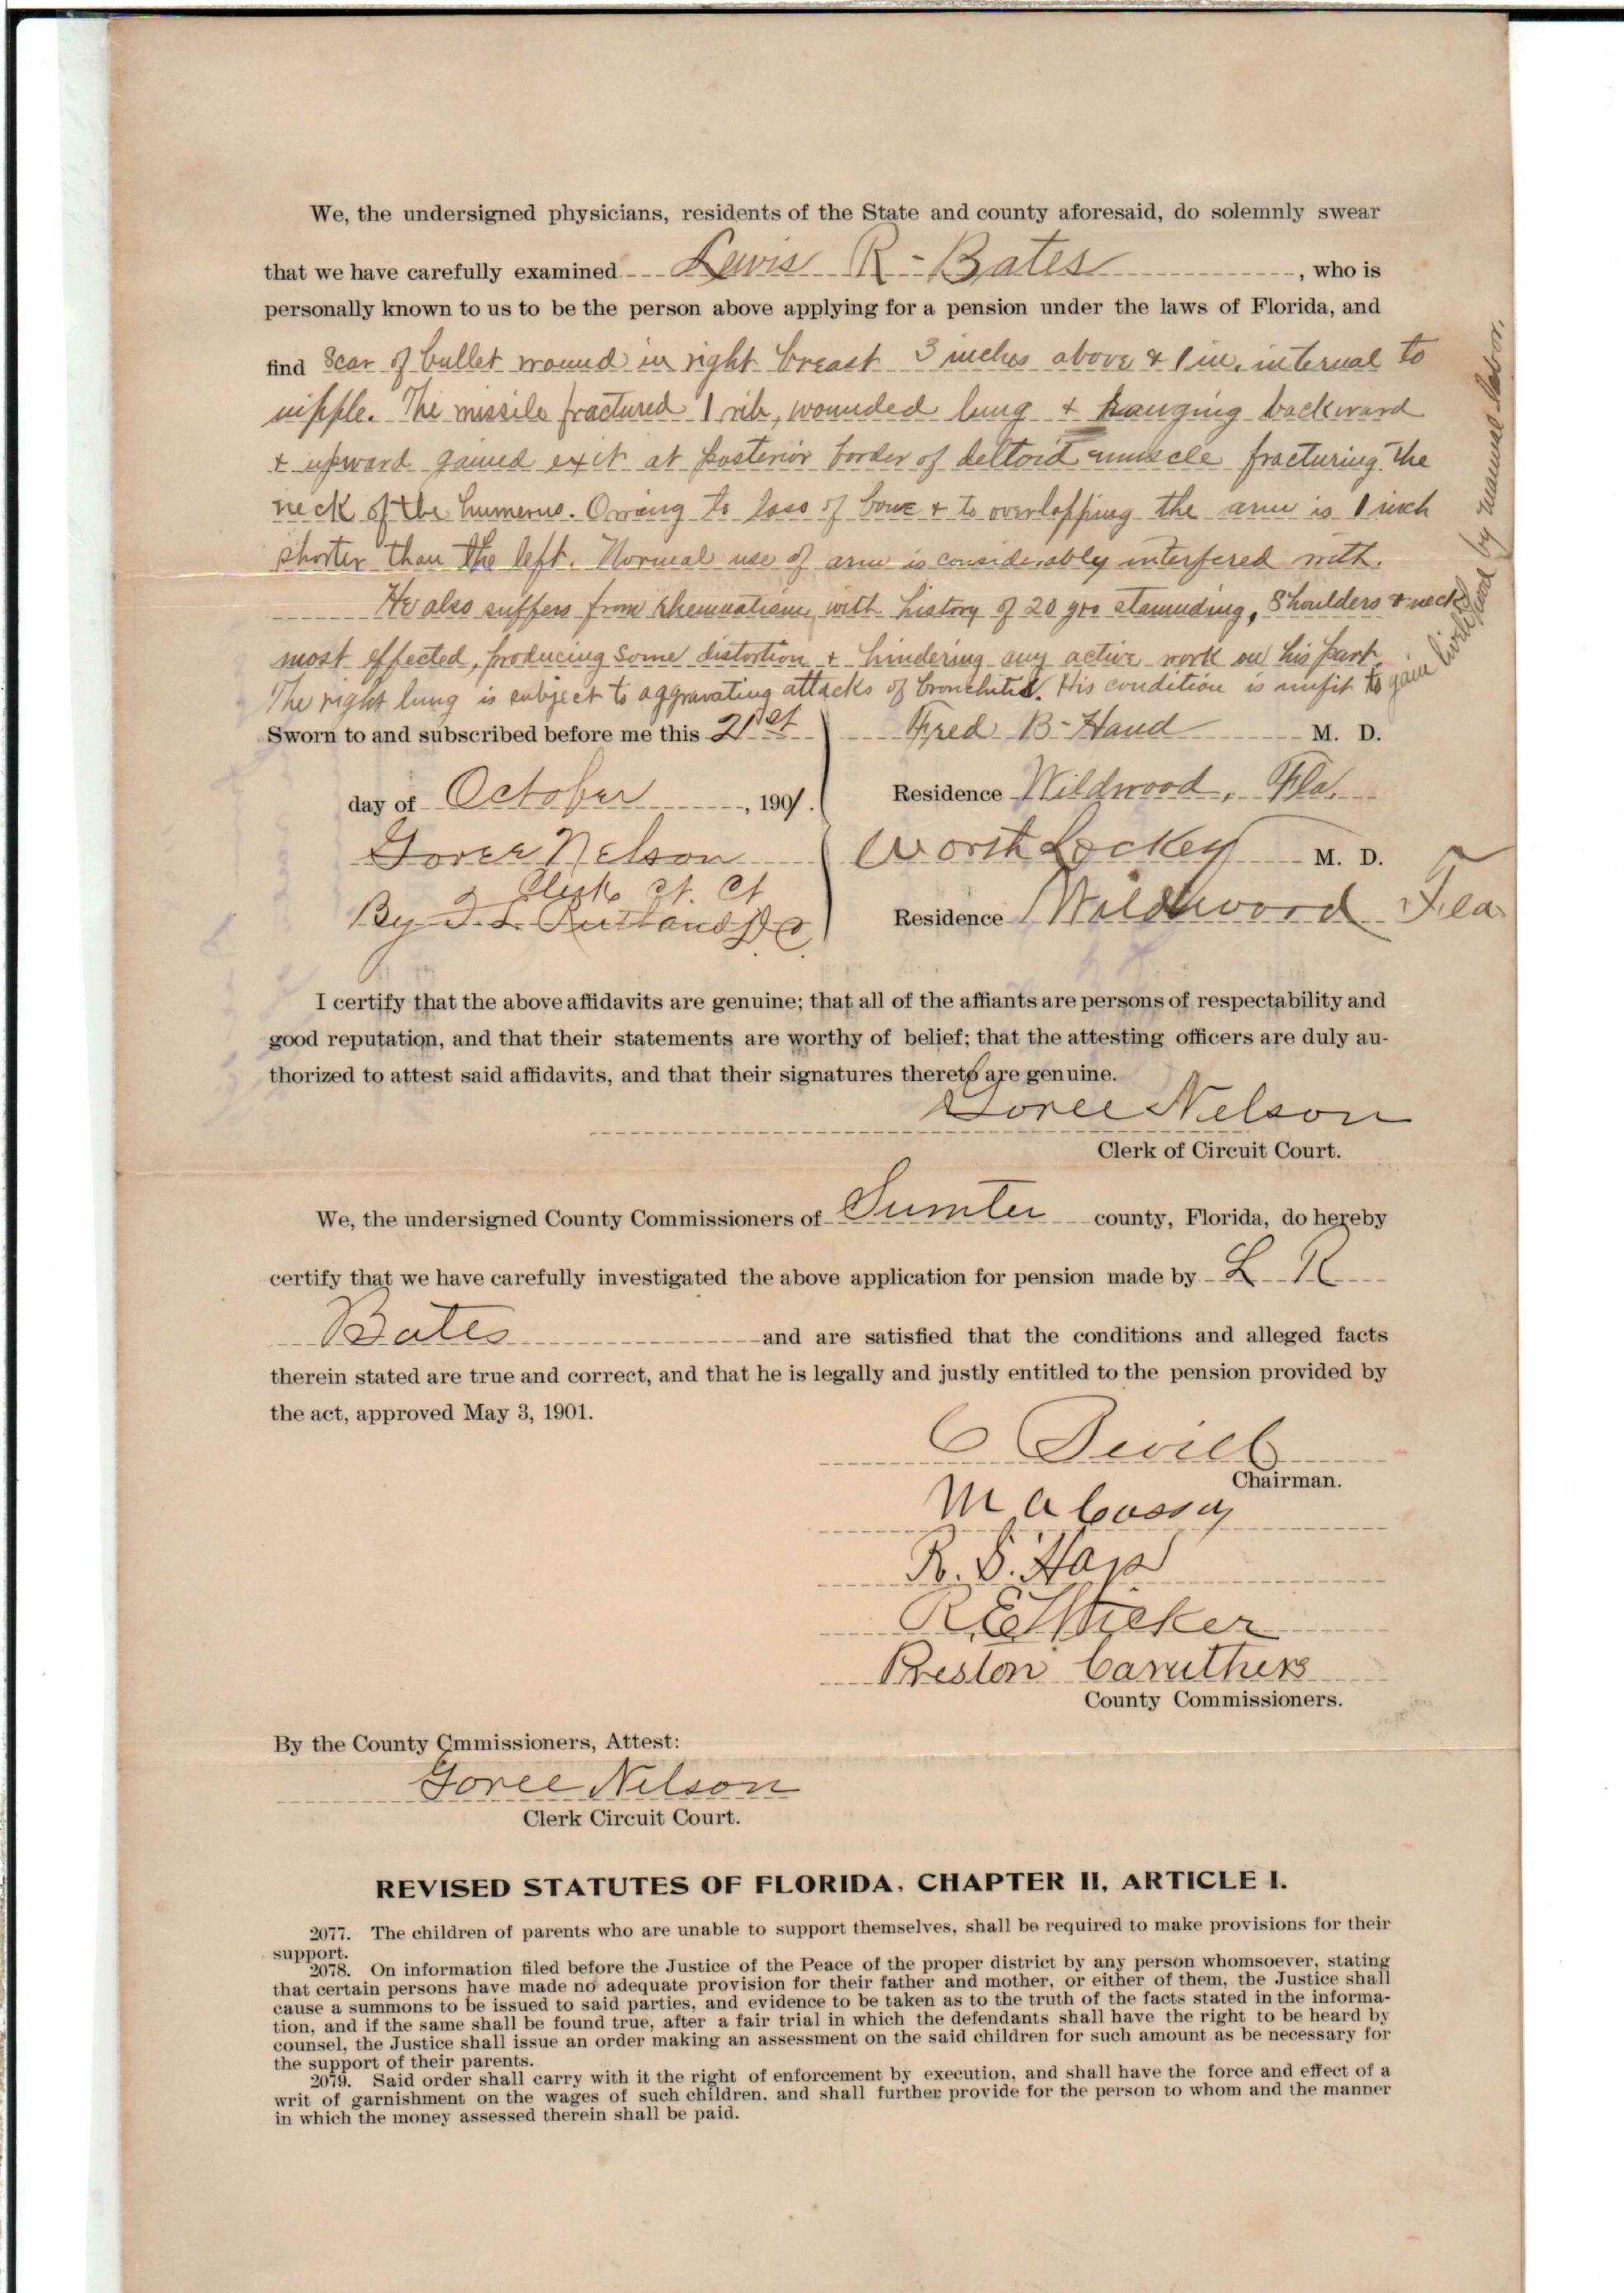 We, the undersigned physicians, residents of the State and county aforesaid, do solemnly swear
that we have carefully examined Lewis R - Bates, who is
personally known to us to be the person above applying for a pension under the laws of Florida, and
find Scar of bullet wound in right breast 3 inches above & 1 in. internal to
nipple. The missile fractured 1 rib, wounded lung & ranging backward
& upward gained exit at posterior border of deltoid muscle fracturing the
neck of the humerus. Owing to loss of bone & to overlapping the arm is 1 inch
shorter than the left. Normal use of arm is considerably interfered with.
He also suffers from rheumatism with history of 20 yrs stannding, Shoulders & neck
most effected, producing some distortion & hindering any active work on his part.
The right lung is subject to aggravating attacks of bronchitis. His condition is unfit to gain livelihood by manual labor.
Sworn to and subscribed before me this 21st
Fred B - Hand M. D.
day of October, 1901.
Residence Wildwood, Fla.
Goree Nelson
Worth Lockey M. D.
Clerk Ct. Ct
By Rutland D C
Residence Wildwood Fla
I certify that the above affidavits are genuine; that all of the affiants are persons of respectability and
good reputation, and that their statements are worthy of belief; that the attesting officers are duly au-
thorized to attest said affidavits, and that their signatures thereto are genuine.
Goree Nelson
Clerk of Circuit Court.
We, the undersigned County Commissioners of Sumter county, Florida, do hereby
certify that we have carefully investigated the above application for pension made by L R
Bates and are satisfied that the conditions and alleged facts
therein stated are true and correct, and that he is legally and justly entitled to the pension provided by
the act, approved May 3, 1901.
C
Chairman.
M A
R. S. Hays
R E
Preston Caruthers
County Commissioners.
By the County Cmmissioners, Attest:
Goree Nelson
Clerk Circuit Court.
REVISED STATUTES OF FLORIDA, CHAPTER II, ARTICLE I.
2077. The children of parents who are unable to support themselves, shall be required to make provisions for their
support.
2078. On information filed before the Justice of the Peace of the proper district by any person whomsoever, stating
that certain persons have made no adequate provision for their father and mother, or either of them, the Justice shall
cause a summons to be issued to said parties, and evidence to be taken as to the truth of the facts stated in the informa-
tion, and if the same shall be found true, after a fair trial in which the defendants shall have the right to be heard by
counsel, the Justice shall issue an order making an assessment on the said children for such amount as be necessary for
the support of their parents.
2079. Said order shall carry with it the right of enforcement by execution, and shall have the force and effect of a
writ of garnishment on the wages of such children, and shall further provide for the person to whom and the manner
in which the money assessed therein shall be paid.